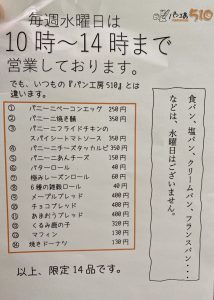 パン工房510
毎週水曜日は
10時～14時まで
営業しております。
でも、いつもの『パン工房510』とは
違います。
① パニーニベーコンエッグ 250円
② パニーニ焼き鯖 350円
③ パニーニフライドチキンの
スパイシートマトソース 350円
④ パニーニチーズタッカルビ 350円
⑤ パニーニあんチーズ 150円
⑥ バターロール 60円
⑦ 極みレーズンロール 60円
⑧ 6種の雑穀ロール 40円
⑨ メープルブレッド 400円
⑩ チョコブレッド 400円
⑪ あきおうブレッド 400円
⑫ くるみ鹿の子 320円
⑬ マフィン 130円
⑭ 焼きドーナツ 130円
以上、限定14品です。
食パン、塩パン、クリームパン、フランスパン・・・
などは、水曜日はございません。